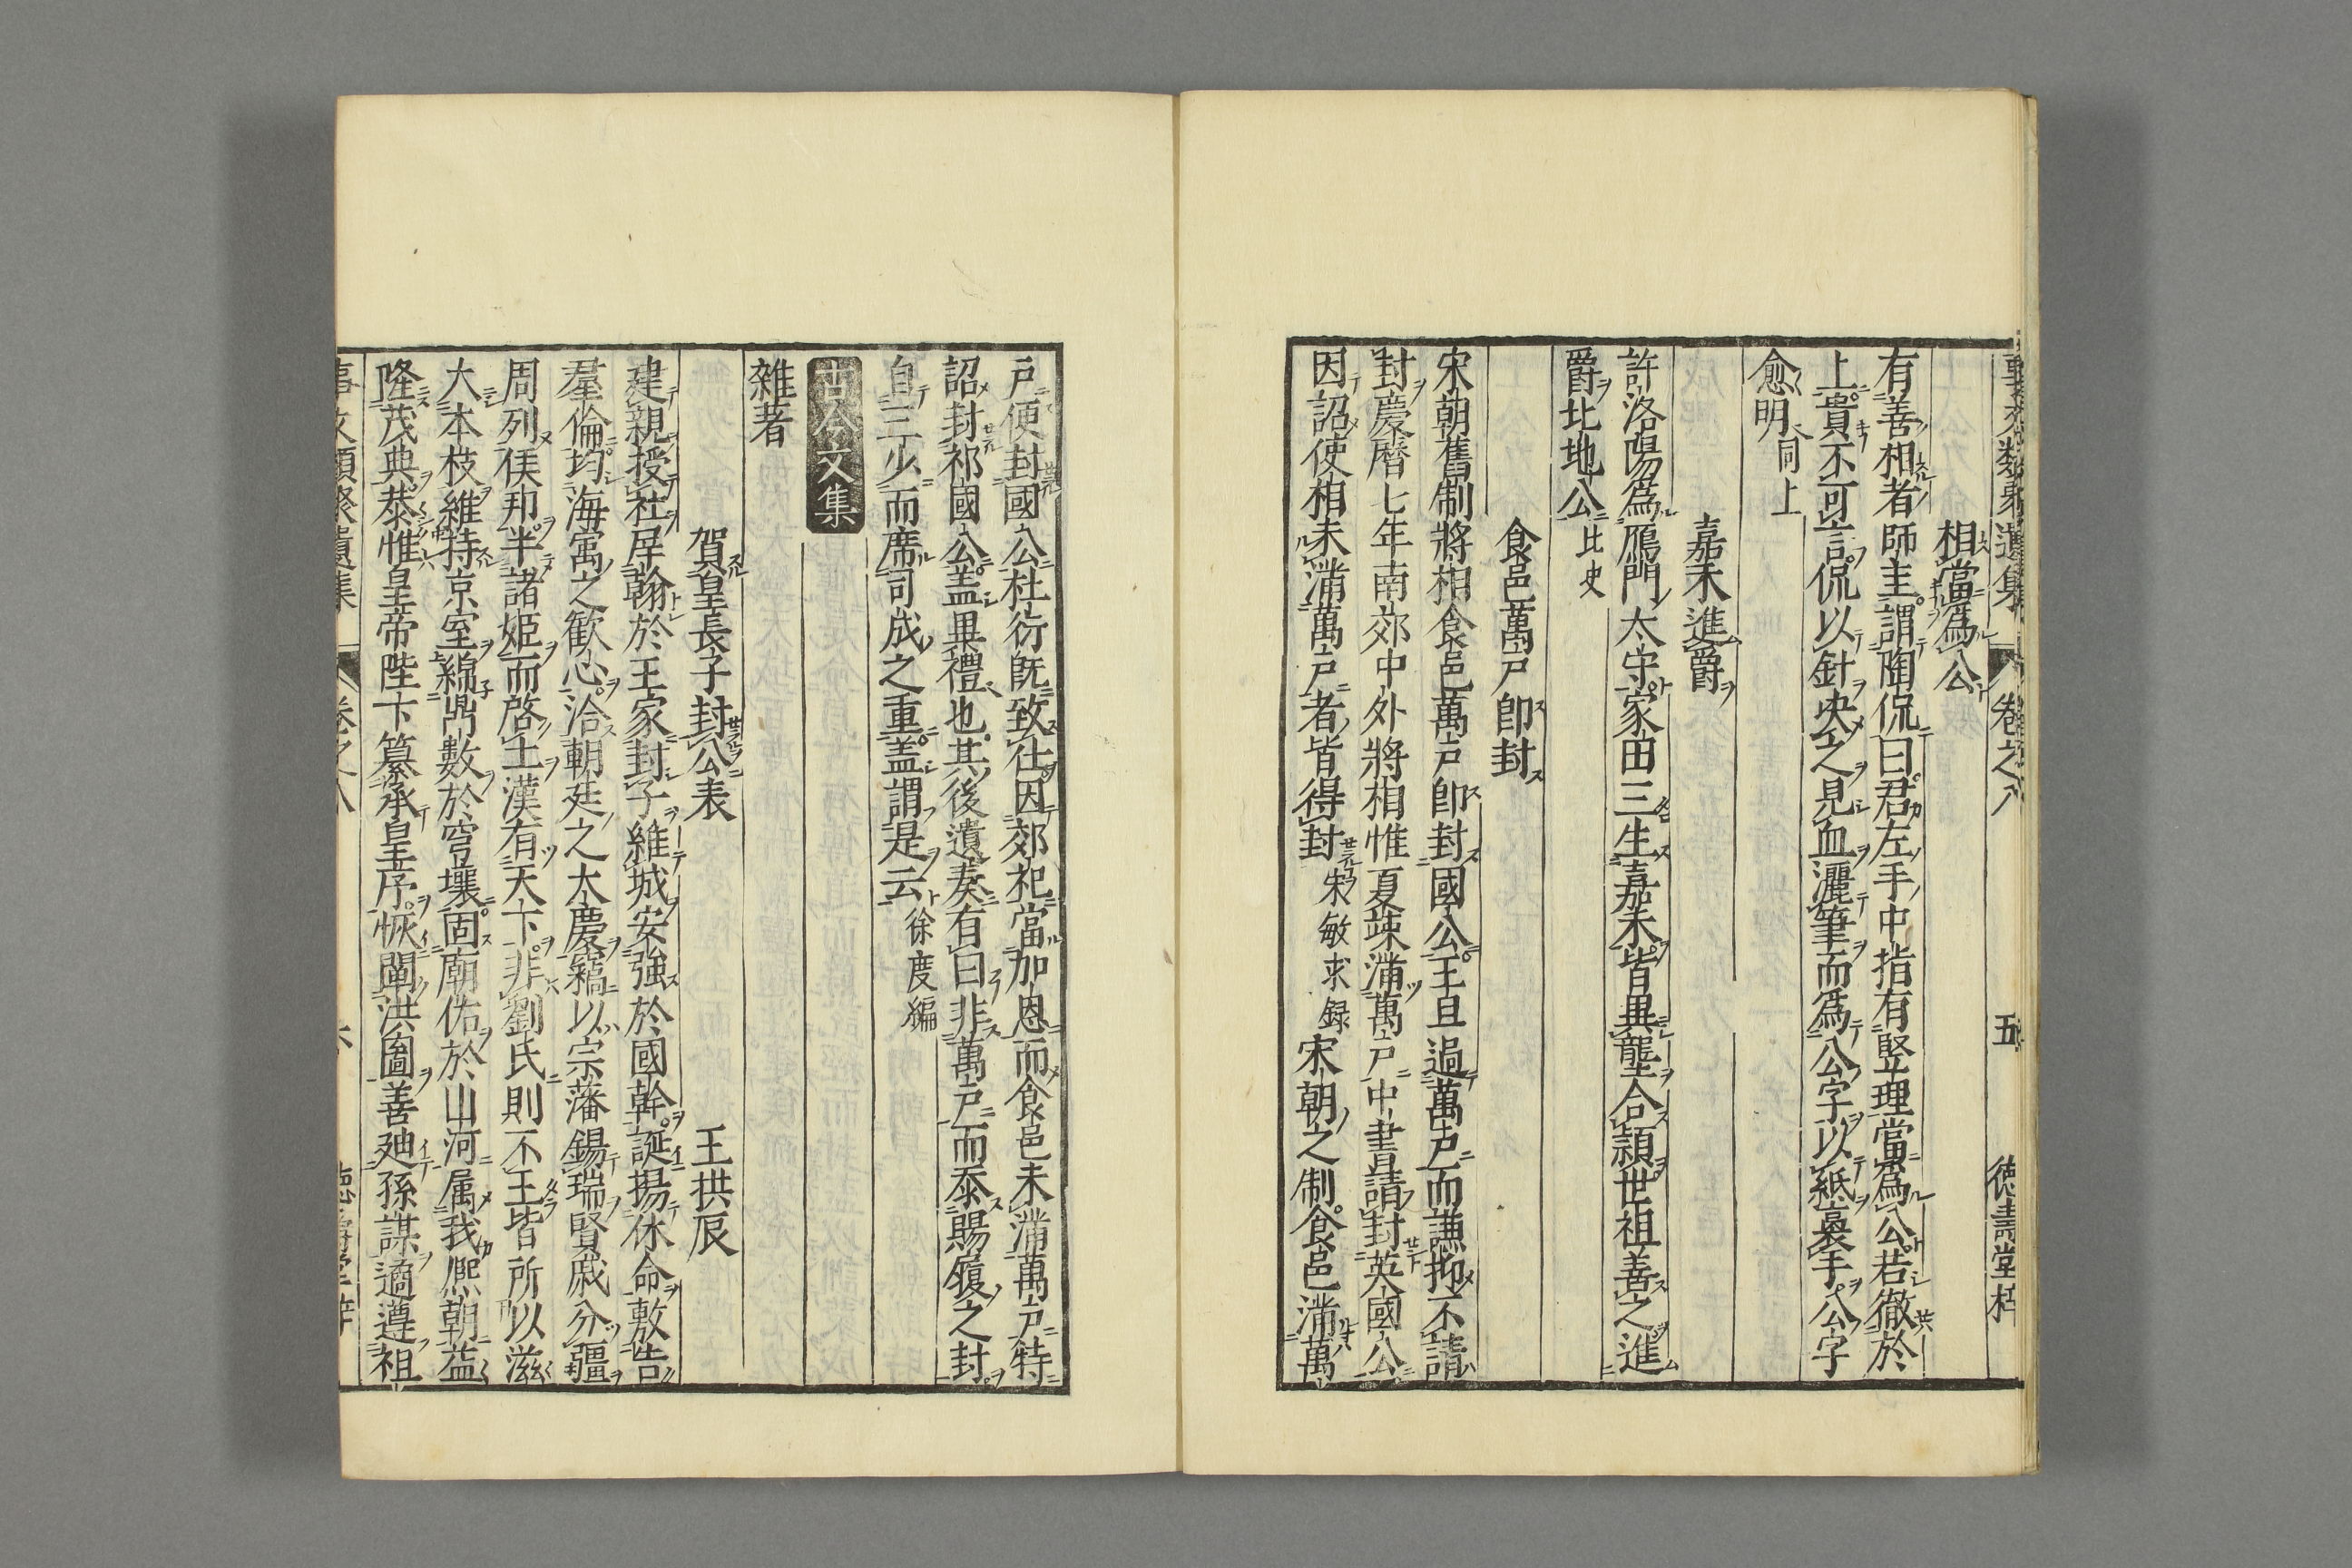 事文類聚遺集 卷之八 五 德壽堂梓
相當爲公
有善相者師圭謂陶侃曰君左手中指有竪理當爲公若徹於
上貴不可言侃以針决之見血灑筆而爲公字以紙裛手公字
愈明 同上
嘉禾進爵
許洛陽爲鴈門太守家田三生嘉禾皆異壟合穎世祖善之進
爵比地公 北史
食邑萬户卽封
宋朝舊制將相食邑萬户卽封國公王旦過萬户而謙抑不請
封慶曆七年南郊中外將相惟夏竦滿萬户中書請封英國公
因詔使相未滿萬户者皆得封 宋敏求録 宋朝之制食邑滿萬
户便封國公杜衍既致仕因郊祀當加恩而食邑未滿萬户特
詔封祁國公盖異禮也其後遺奏有曰非萬户而忝賜履之封
自三少而席司成之重盖謂是云 徐度編
古今文集
雜著
賀皇長子封公表 王拱辰
建親授社屏翰於王家封子維城安強於國幹誕揚休命敷告
羣倫均海寓之歡心洽朝廷之大慶竊以宗藩錫瑞賢戚分疆
周列侯邦半諸姫而啓土漢有天下非劉氏則不王皆所以滋
大本枝維持京室綿鼎數於穹壤固廟佑於山河属我熈朝益
隆茂典恭惟皇帝陛下纂承皇序恢闡洪圖善廸孫謀適遵祖
事文類聚遺集 卷之八 六 德壽堂梓